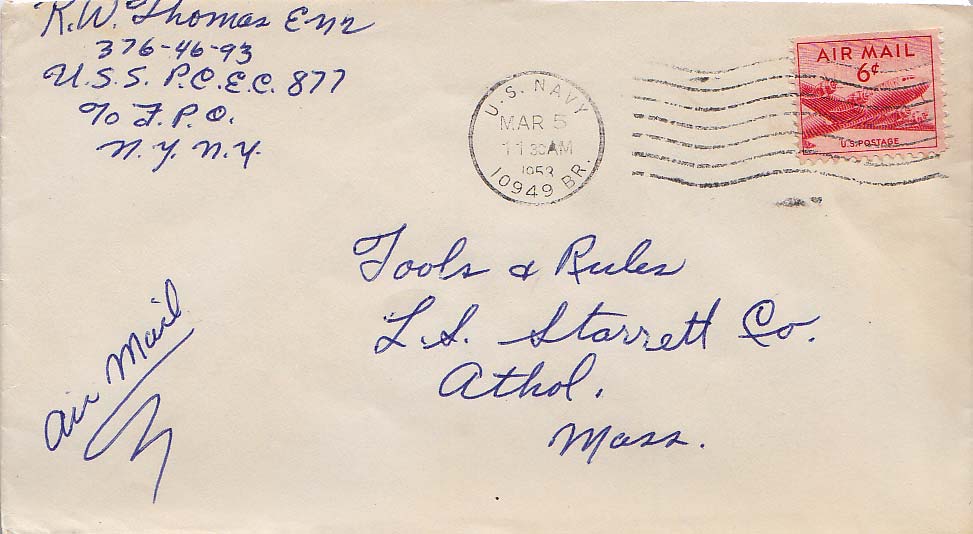 R.W. Thomas Enr
376-46-93
U.S.S. P.C.E.C. 877
℅ F.P.O.
N.Y. N.Y.
U.S. NAVY
MAR 5
11 30AM
1953
10949 BR.
AIR MAIL
6¢
U.S. POSTAGE
Tools & Rules
L.S. Starrett Co.
Athol,
Mass.
Air Mail